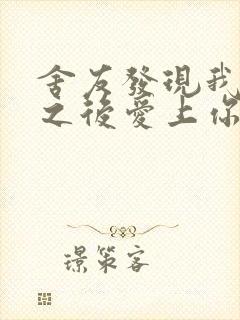 舍友發現我
之後愛上你
璟策客